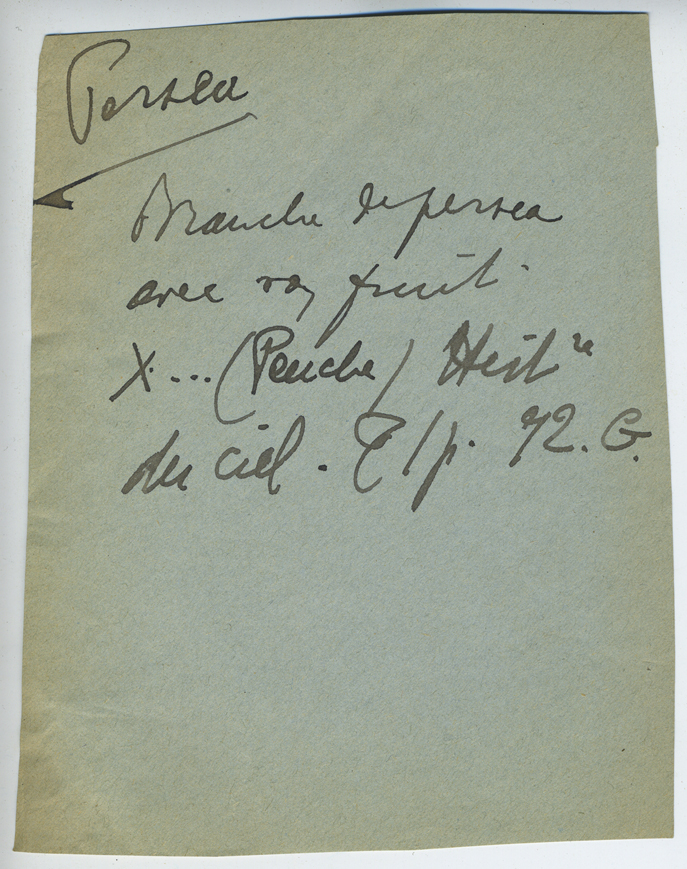 Persea
Branche de persea
avec son fruit.
X... (Peuche) Hist re
du ciel. T 1 p. 72. G.